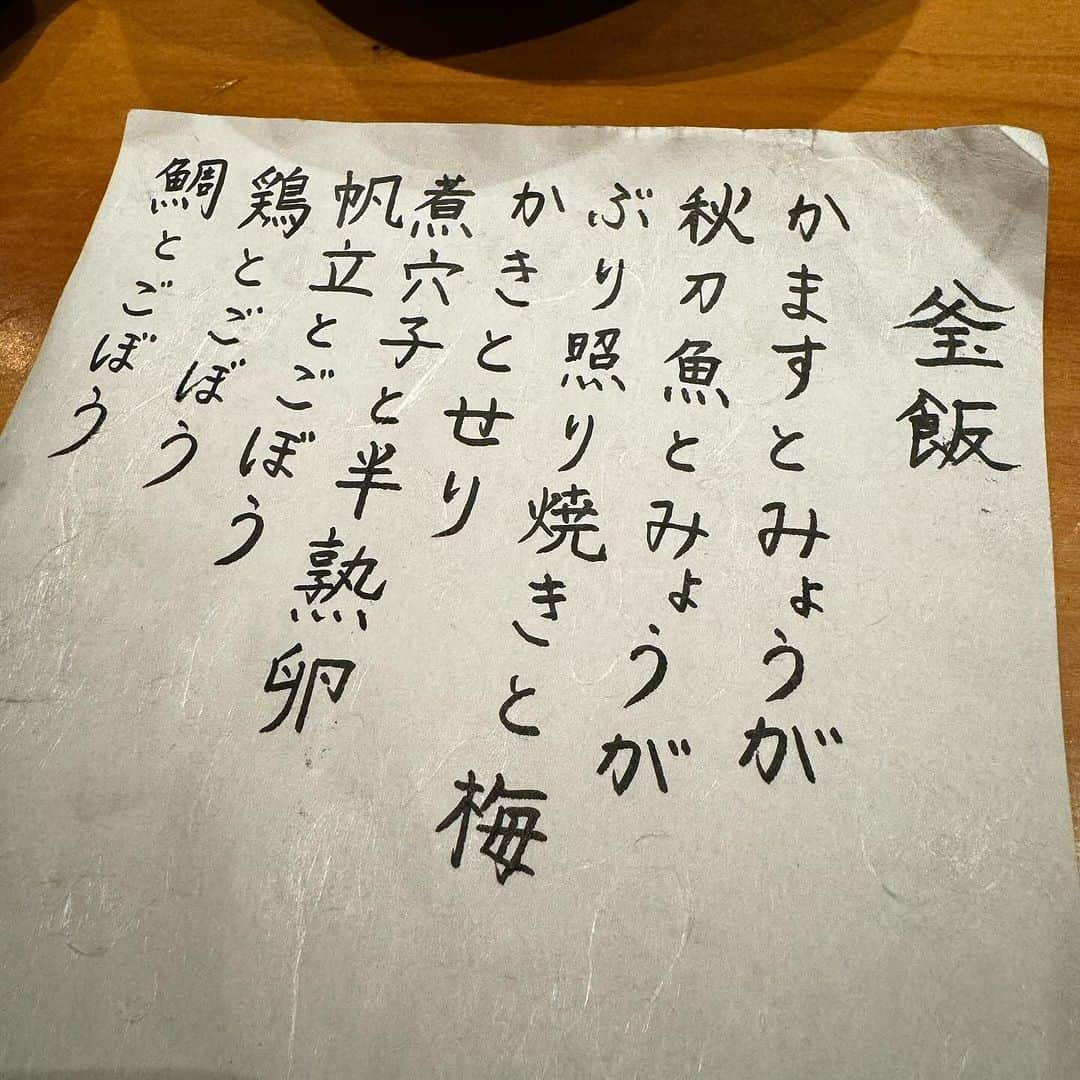 釜飯
かますとみょうが
秋刀魚とみょうが
ぶり照り焼きと梅
かきとせり
煮穴子と半熟卵
帆立とごぼう
鶏とごぼう
鯛とごぼう